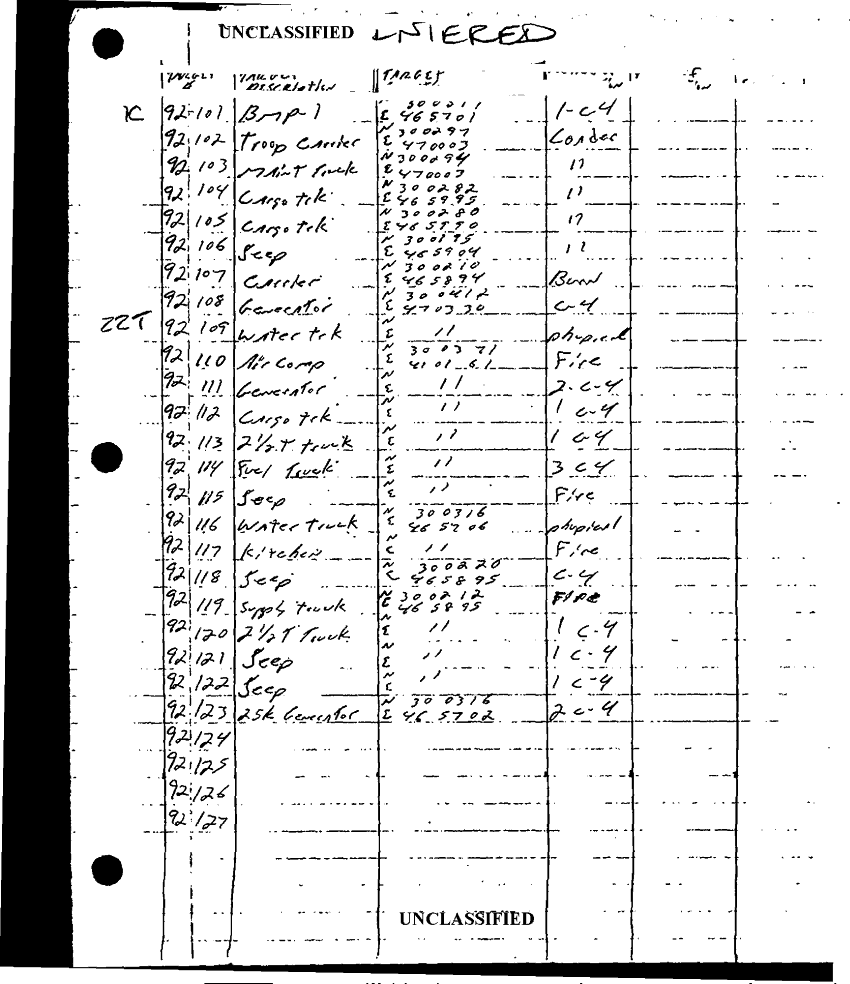 UNCLASSIFIED ENTERED
TARGET
Description
1C 92-101 Bmp-1 300211 E 465701 1-C-4
92 102 Troop Carrier N 300297 E 470003
92 103 Maint Truck N 300294 E 470003 "
92 104 Cargo trk N 300282 E 465995 "
92 105 Cargo trk N 300280 E 465990 "
92 106 Jeep N 300195 E 465904 "
92 107 Carrier N 300210 E 465894 Burn
92 108 Generator N 300412 E 470330 C-4
22T 92 109 Water trk N E " physical
92 110 Air Comp N 300371 E Fire
92 111 Generator N E " 2-C-4
92 112 Cargo trk N E " 1 C-4
92 113 2½T truck N E " 1 C-4
92 114 Fuel Truck N E " 3 C4
92 115 Jeep N E " Fire
92 116 Water Truck N 300316 E 465706 physical
92 117 Kitchen N E " Fire
92 118 Jeep N 300220 E 465895 C-4
92 119 Supply truck N 300212 E 465895 Fire
92 120 2½T Truck N E " 1 C-4
92 121 Jeep N E " 1 C-4
92 122 Jeep N E " 1 C-4
92 123 25K Generator N 300316 E 465702 2 C-4
92 124
92 125
92 126
92 127
UNCLASSIFIED